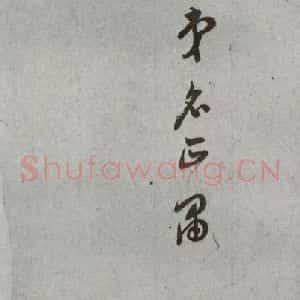 弟名正肅
Shufawang.CN